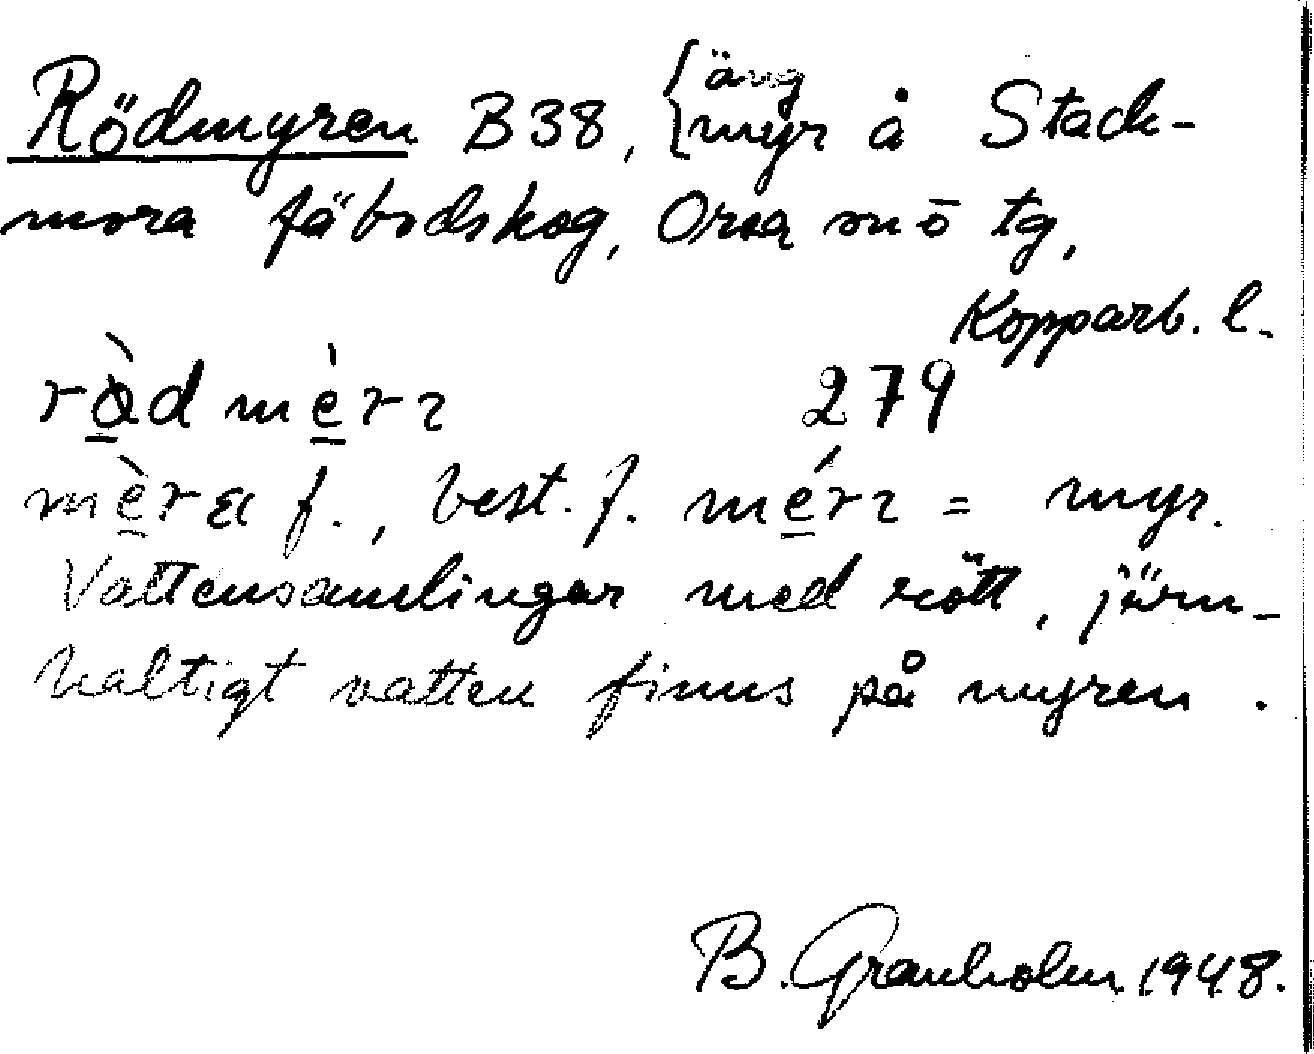 Rödmyren B38, { äng
myr å Stack-
mora fäbodskog, Orsa sn ö tg,
Kopparb. l.
279
f., best. f. = myr.
Vattensamlingar med rött, järn-
haltigt vatten finns på myren.
B. Granholm 1948.